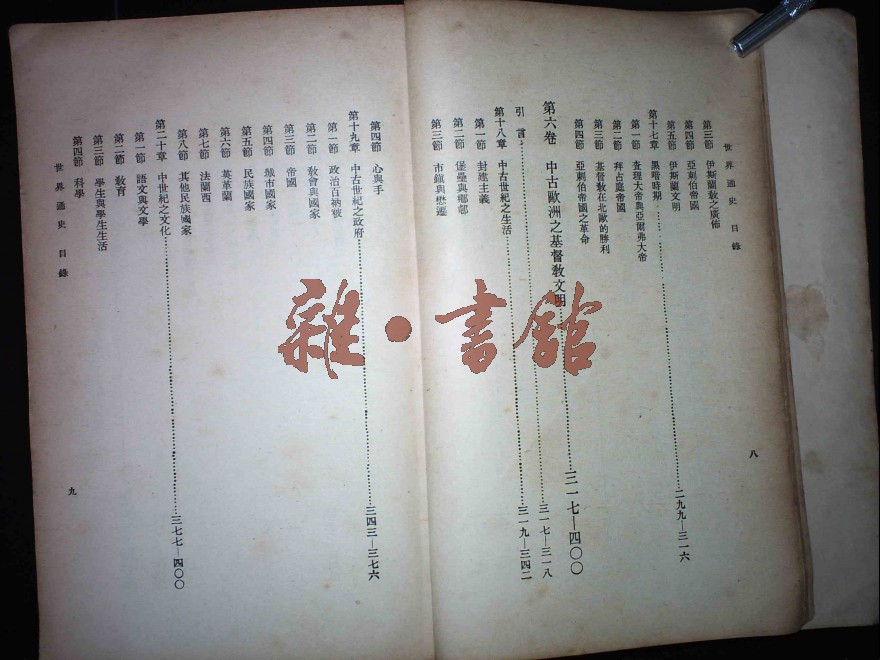 世界通史 目錄
八
第三節 伊斯蘭教之廣佈
第四節 亞剌伯帝國
第五節 伊斯蘭文明
第十七章 黑暗時期……二九九—三一六
第一節 查理大帝與亞爾弗大帝
第二節 拜占庭帝國
第三節 基督敎在北歐的勝利
第四節 亞剌伯帝國之革命
第六卷 中古歐洲之基督敎文明……三一七—四〇〇
引言……三一七—三一八
第十八章 中古世紀之生活……三一九—三四二
第一節 封建主義
第二節 堡壘與鄉邨
第三節 市鎭與懋遷
第四節 心與手
第十九章 中古世紀之政府……三四三—三七六
第一節 政治百衲被
第二節 敎會與國家
第三節 帝國
第四節 城市國家
第五節 民族國家
第六節 英革蘭
第七節 法蘭西
第八節 其他民族國家
第二十章 中世紀之文化……三七七—四〇〇
第一節 語文與文學
第二節 敎育
第三節 學生與學生生活
第四節 科學
世界通史 目錄
九
雜·書館